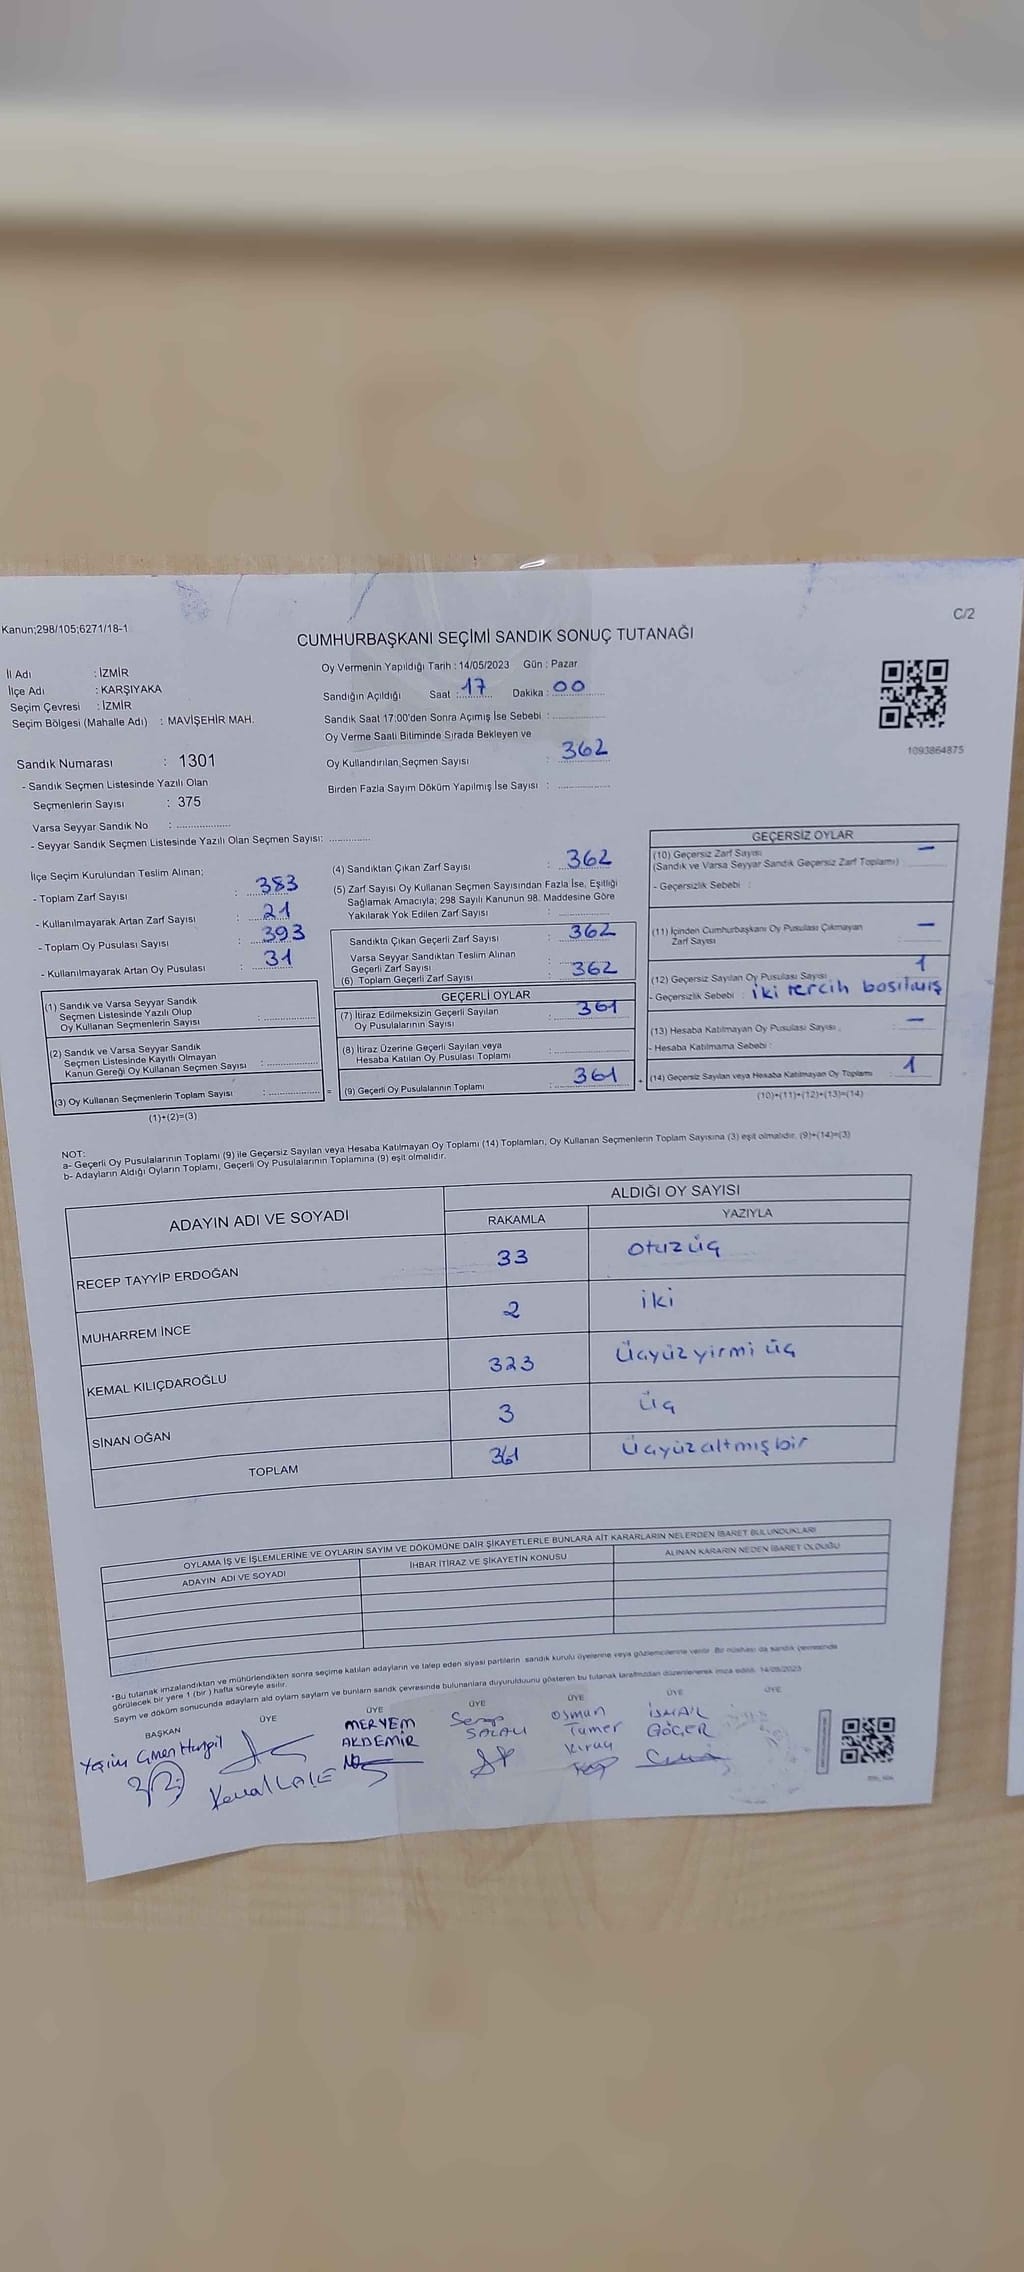 Kanun;298/105;6271/18-1
C/2
CUMHURBAŞKANI SEÇİMİ SANDIK SONUÇ TUTANAĞI
İl Adı : İZMİR
İlçe Adı : KARŞIYAKA
Seçim Çevresi : İZMİR
Seçim Bölgesi (Mahalle Adı) : MAVİŞEHİR MAH.
Oy Vermenin Yapıldığı Tarih : 14/05/2023 Gün : Pazar
Sandığın Açıldığı Saat : 17 Dakika : 00
Sandık Saat 17:00'den Sonra Açımış İse Sebebi :
Oy Verme Saati Bitiminde Sırada Bekleyen ve
Oy Kullandırılan Seçmen Sayısı : 362
Birden Fazla Sayım Döküm Yapılmış İse Sayısı :
1093864875
Sandık Numarası : 1301
- Sandık Seçmen Listesinde Yazılı Olan
Seçmenlerin Sayısı : 375
Varsa Seyyar Sandık No :
- Seyyar Sandık Seçmen Listesinde Yazılı Olan Seçmen Sayısı:
İlçe Seçim Kurulundan Teslim Alınan;
- Toplam Zarf Sayısı : 383
- Kullanılmayarak Artan Zarf Sayısı : 21
- Toplam Oy Pusulası Sayısı : 393
- Kullanılmayarak Artan Oy Pusulası : 31
(4) Sandıktan Çıkan Zarf Sayısı : 362
(5) Zarf Sayısı Oy Kullanan Seçmen Sayısından Fazla İse, Eşitliği
Sağlamak Amacıyla; 298 Sayılı Kanunun 98. Maddesine Göre
Yakılarak Yok Edilen Zarf Sayısı :
Sandıkta Çıkan Geçerli Zarf Sayısı : 362
Varsa Seyyar Sandıktan Teslim Alınan
Geçerli Zarf Sayısı :
(6) Toplam Geçerli Zarf Sayısı : 362
GEÇERLİ OYLAR
(7) İtiraz Edilmeksizin Geçerli Sayılan
Oy Pusulalarının Sayısı : 361
(8) İtiraz Üzerine Geçerli Sayılan veya
Hesaba Katılan Oy Pusulası Toplamı :
(9) Geçerli Oy Pusulalarının Toplamı : 361
(1) Sandık ve Varsa Seyyar Sandık
Seçmen Listesinde Yazılı Olup
Oy Kullanan Seçmenlerin Sayısı :
(2) Sandık ve Varsa Seyyar Sandık
Seçmen Listesinde Kayıtlı Olmayan
Kanun Gereği Oy Kullanan Seçmen Sayısı :
(3) Oy Kullanan Seçmenlerin Toplam Sayısı : =
(1)+(2)=(3)
GEÇERSİZ OYLAR
(10) Geçersiz Zarf Sayısı –
(Sandık ve Varsa Seyyar Sandık Geçersiz Zarf Toplamı)
- Geçersizlik Sebebi :
(11) İçinden Cumhurbaşkanı Oy Pusulası Çıkmayan
Zarf Sayısı : –
(12) Geçersiz Sayılan Oy Pusulası Sayısı 1
- Geçersizlik Sebebi : iki tercih basılmış
(13) Hesaba Katılmayan Oy Pusulası Sayısı : –
- Hesaba Katılmama Sebebi :
+ (14) Geçersiz Sayılan veya Hesaba Katılmayan Oy Toplamı : 1
(10)+(11)+(12)+(13)=(14)
NOT:
a- Geçerli Oy Pusulalarının Toplamı (9) ile Geçersiz Sayılan veya Hesaba Katılmayan Oy Toplamı (14) Toplamları, Oy Kullanan Seçmenlerin Toplam Sayısına (3) eşit olmalıdır. (9)+(14)=(3)
b- Adayların Aldığı Oyların Toplamı, Geçerli Oy Pusulalarının Toplamına (9) eşit olmalıdır.
ADAYIN ADI VE SOYADI ALDIĞI OY SAYISI
RAKAMLA YAZIYLA
RECEP TAYYİP ERDOĞAN 33 otuz üç
MUHARREM İNCE 2 iki
KEMAL KILIÇDAROĞLU 323 Üçyüz yirmi üç
SİNAN OĞAN 3 üç
TOPLAM 361 Üçyüz altmış bir
OYLAMA İŞ VE İŞLEMLERİNE VE OYLARIN SAYIM VE DÖKÜMÜNE DAİR ŞİKAYETLERLE BUNLARA AİT KARARLARIN NELERDEN İBARET BULUNDUKLARI
ADAYIN ADI VE SOYADI İHBAR İTİRAZ VE ŞİKAYETİN KONUSU ALINAN KARARIN NEDEN İBARET OLDUĞU
*Bu tutanak imzalandıktan ve mühürlendikten sonra seçime katılan adayların ve talep eden siyasi partilerin sandık kurulu üyelerine veya gözlemcilerine verilir. Bir nüshası da sandık çevresinde
görülecek bir yere 1 (bir) hafta süreyle asılır.
Sayım ve döküm sonucunda adayların aldı oyların sayıları ve bunların sandık çevresinde bulunanlara duyurulduunu gösteren bu tutanak tarafımızdan düzenlenerek imza edildi. 14/05/2023
BAŞKAN ÜYE ÜYE ÜYE ÜYE ÜYE ÜYE
Kemal LALE
MERYEM AKDEMİR
Osman Tümer
İSMAİL GÖÇER